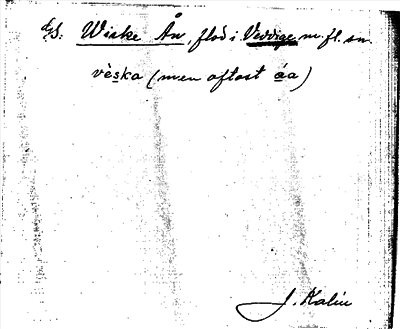 Wiske Ån, flod i Veddige m. fl. sn.
vèska (men oftast åa)
J. Kalén